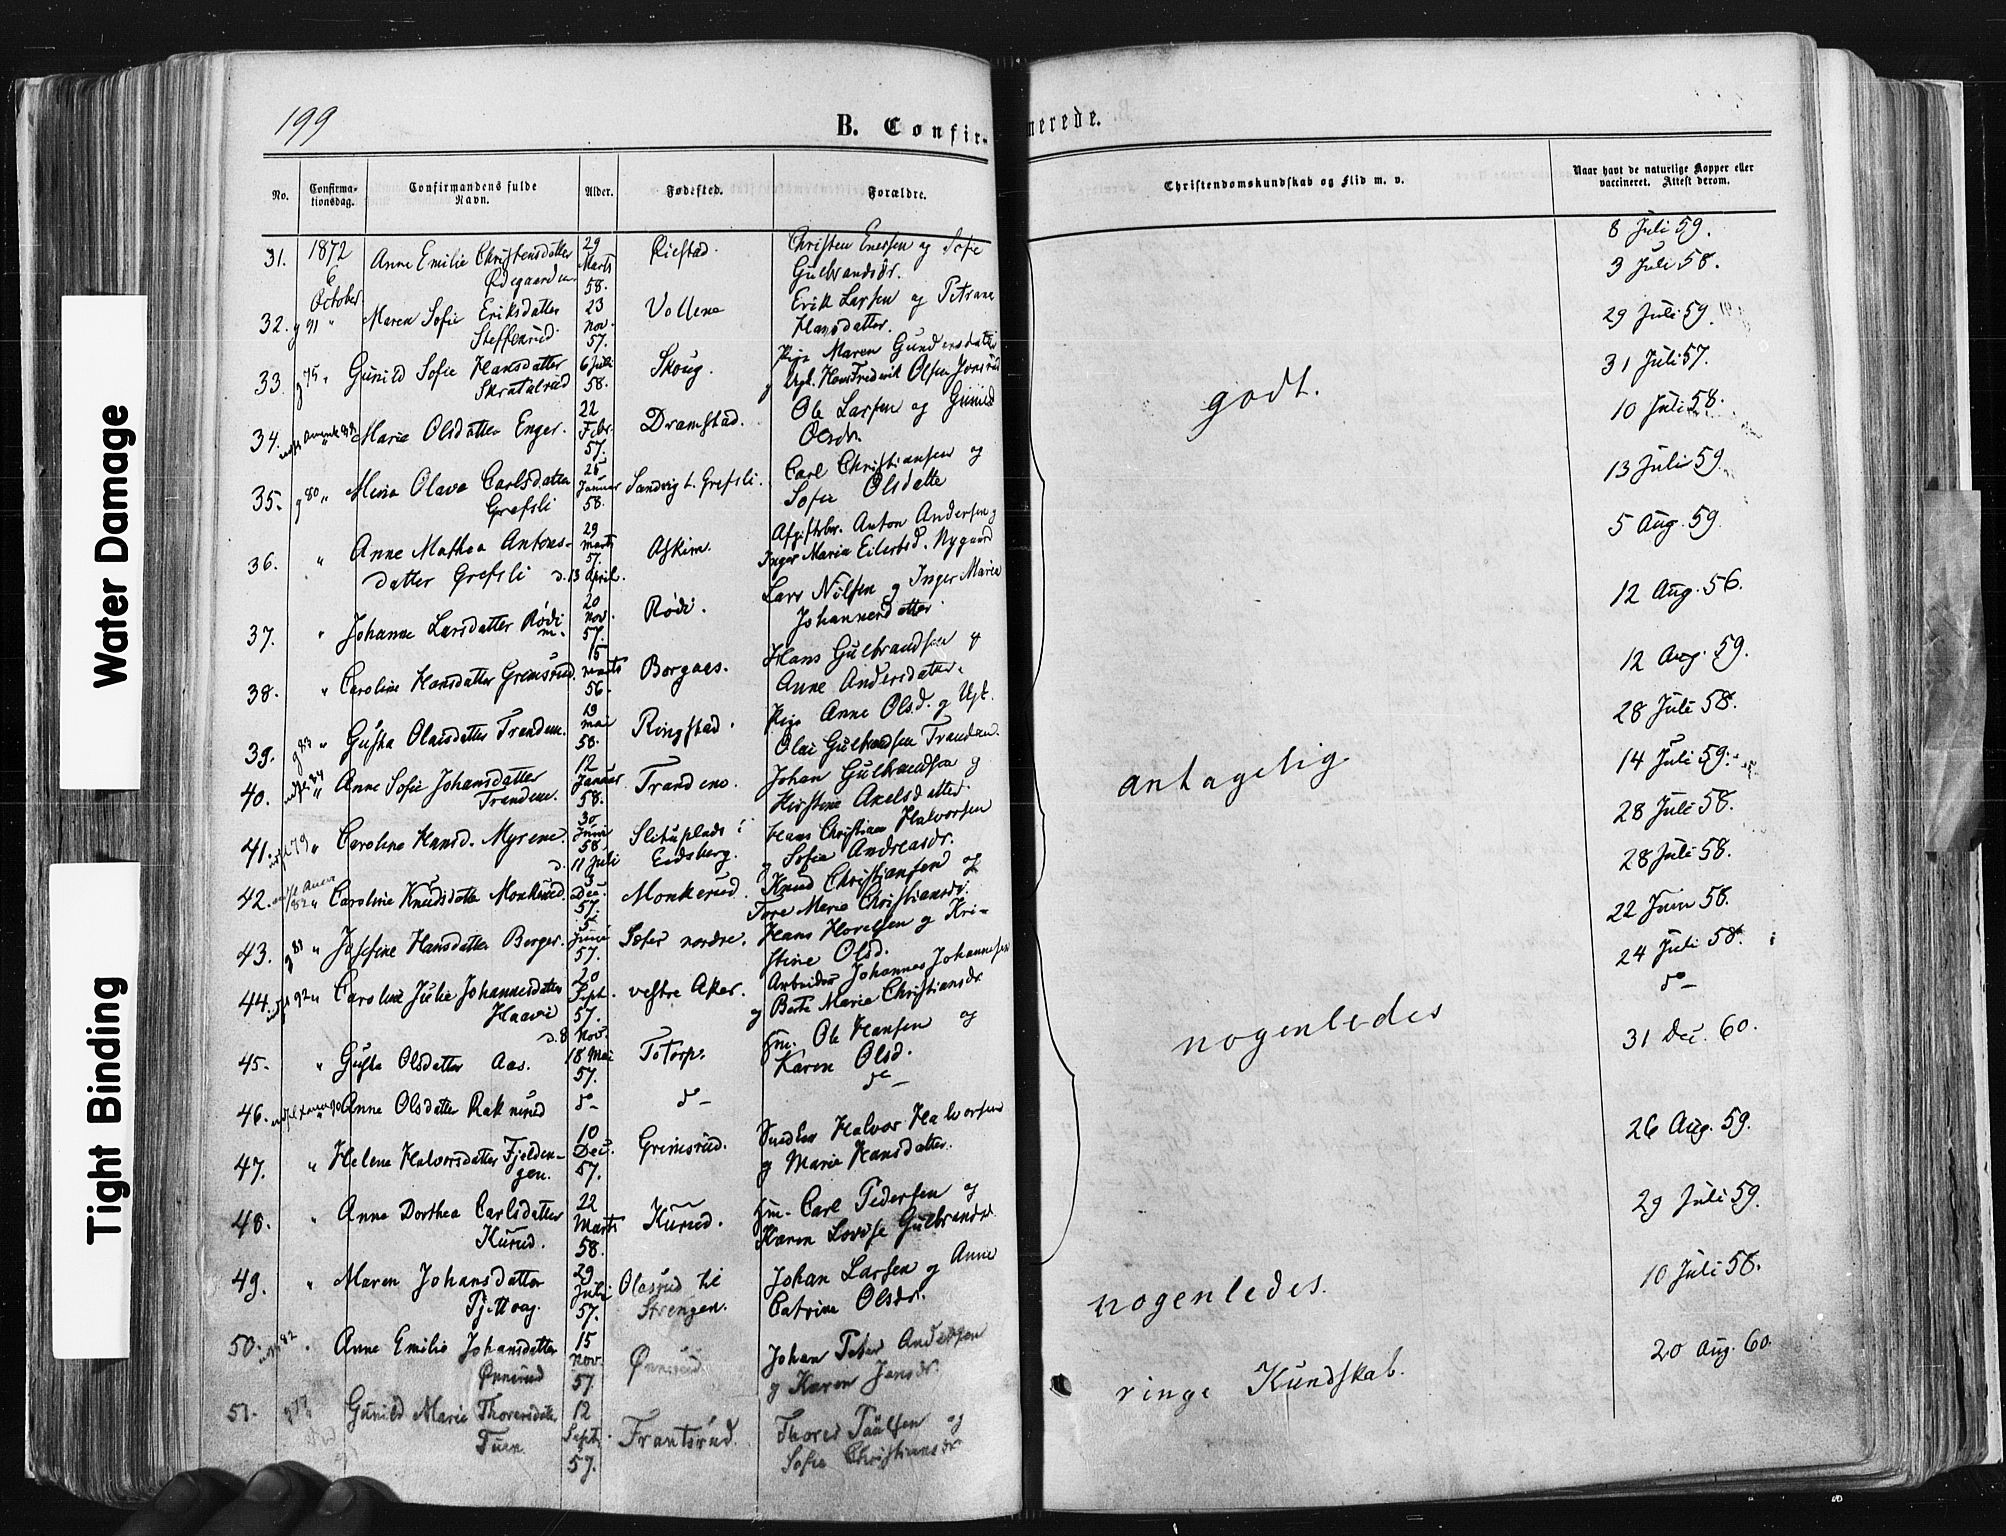 Water Damage
Tight Binding
199
B. Confir-
merede.
No.
Confirma-
tionsdag.
Confirmandens fulde
Navn.
Alder.
Fødested.
Forældre.
Christendomskundskab og Flid m. v.
Naar havt de naturlige Kopper eller
vaccineret. Attest derom.
31. 1872 Anne Emilie Christensdatter 29 Christen Enersen og Sofie
6 Ødegaarden Marts Gulbrandsdr.
October 58.
8 Juli 59.
32. g 91 " Maren Sofie Eriksdatter 23 Vollene Erik Larsen og Petrine
Steffenrud nov. Hansdatter.
57.
3 Juli 58.
33 g 75 " Gunild Sofie Hansdatter 6 Juli Skoug. Pige Maren Gundersdatter
58. g Ugk. Hans Frederik Olsen
29 Juli 59
34. Marie Olsdatter Enger. 22 Dramstad. Ole Larsen og Gunild
Febr. Olsdr.
57.
31 Juli 57.
godt.
35. g 80 " Mina Olava Carlsdatter Januar Sandvig u. Grefsli. Carl Christiansen og
Grefsli 58. Sofie Olsdatte
10 Juli 58.
36. " Anne Mathea Antons- 29 Askim. Anton Andersen g
datter Grefsli marts Inger Maria Eilertsd. Nygaard
57.
d. 13 April.
13 Juli 59
37. " Johanne Larsdatter Rødi 20 Rødi. Lars Nilsen g Inger Maria
nov. Johannesdatter
57.
5 Aug. 59
38. " Caroline Hansdatter Grimsrud. 15 Borgaas. Hans Gulbrandsen g
marts Anne Andersdatter.
56.
12 Aug. 56.
39. g 83 " Gusta Olaisdatter Trandem. 19 Ringstad. Pige Anne Olsd. g Ugk.
mai Olai Gulbrandsen Trandem.
58.
12 Aug. 59.
40. " Anne Sofie Johansdatter 12 Trandem Johan Gulbrandsen g
Trandem. Januar Kirstine Axelsdatter.
58.
28 Juli 58.
antagelig
41. 79 " Caroline Hansd. Myrene. 30 i Hans Christian Halvorsen
Juni Eidsberg. g Sofie Andreasdr.
58
d. 11 Juli
14 Juli 59.
42. 82 " Caroline Knudsdatte Monkerud. Dec. Monkerud. Knud Christiansen og
57. Tore Marie Christiansdr.
28 Juli 58.
43. g 81 " Josefine Hansdatter Berger. Juni nordre. Hans Hovelsen g Kri-
57. stine Olsd.
28 Juli 58.
44. 92 " Caroline Julie Johannesdatter 20 vestre Aker. Arbeider Johannes Johannesen
Haavi Sept. g Berte Marie Christiansdr
57.
d. 8 Nov.
22 Juni 58.
45. " Gusta Olsdatter Aas. 18 Mai Totorp. Hm. Ole Hansen og
57. Karen Olsd.
24 Juli 58.
46. Anne Olsdatter Raknerud do do do
do
nogenledes
47. " Helene Halvorsdatter Fjelden- 10 Grimsrud. Snedker Halvor Halvorsen
gen. Dec. g Marie Hansdatter.
57.
31 Dec. 60.
48. " Anne Dorthea Carlsdatter 22 Kurud. Hm. Carl Pedersen og
Kurud. Marts Karen Lovise Gulbrandsd.
58.
26 Aug. 59.
49. " Maren Johansdatter 29 Olasrud til Johan Larsen g Anne
Juli Strengen. Catrine Olsdr.
57.
29 Juli 59.
nogenledes.
50. 82 Anne Emilie Johansdatter 15 Ønnerud. Johan Peter Andersen
Ønnerud nov. g Karen Jensdr.
57
10 Juli 58.
51. Gunild Marie Thorersdatter 12 Frantsrud. Thorer Paulsen og
Tuen Sept. Sofie Christiansdr
57.
20 Aug. 60.
ringe Kundskab.